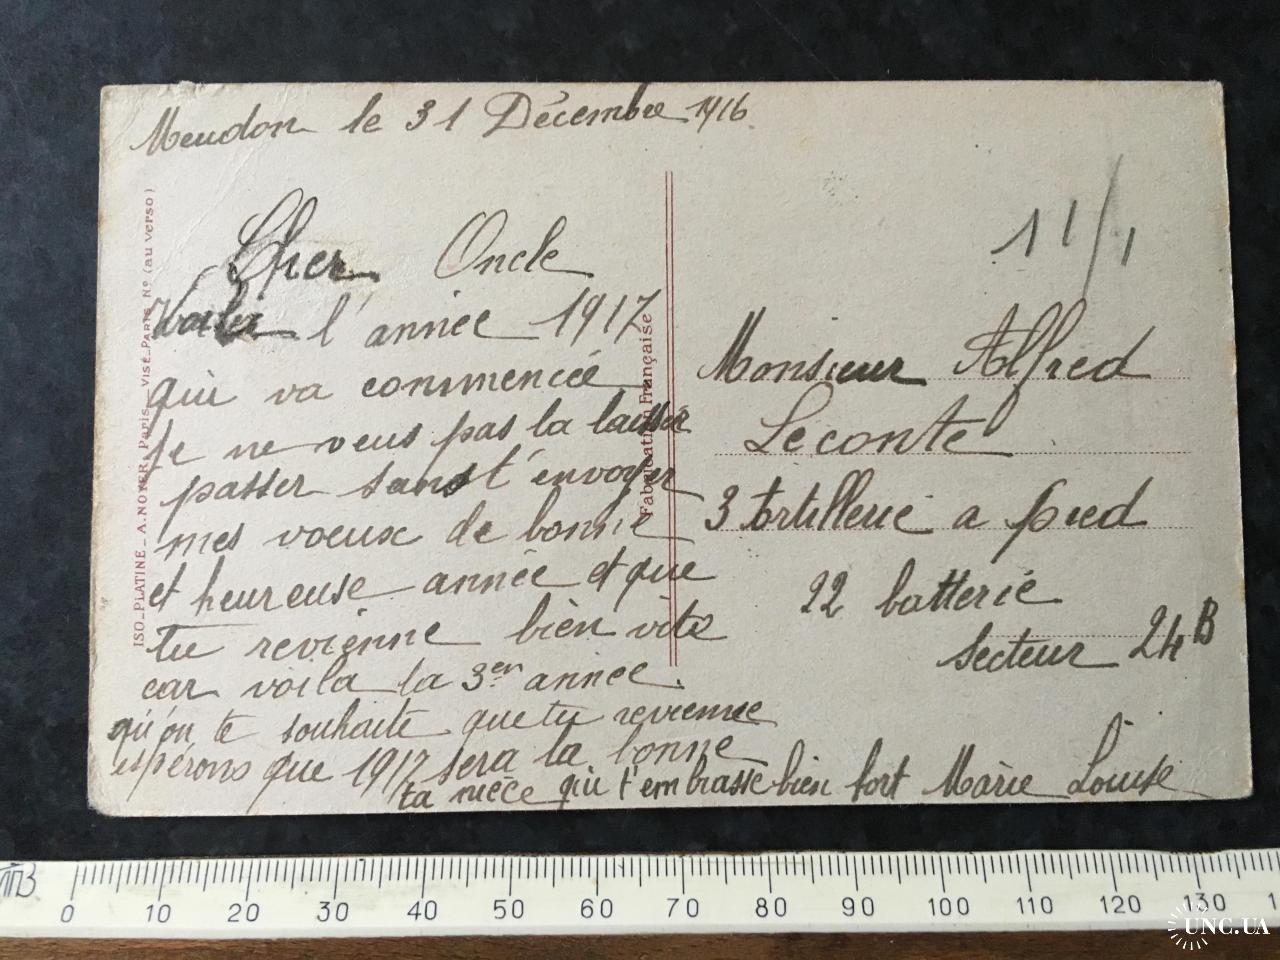 Meudon le 31 Décembre 1916
Cher Oncle
Voila l'année 1917
qui va commencée
Je ne veus pas la laisser
passer sans t'envoyer
mes voeux de bonne
et heureuse année et que
tu revienne bien vite
car voila la 3er année.
qu'on te souhaite que tu revienne
espérons que 1917 sera la bonne
ta nièce qui t'embrasse bien fort Marie Louise
11/1
Monsieur Alfred
Leconte
3 Artillerie a pied
22 batterie
Secteur 24 B
ISO_PLATINE _ A.NOYER, Paris. VISÉ_PARIS No (au verso)
Fabrication Française
0 10 20 30 40 50 60 70 80 90 100 110 120 130 1
UNC.UA